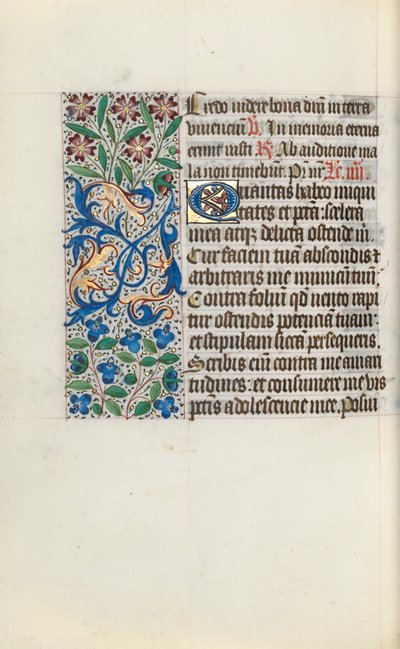 Credo videre bona dm̄ in terra
viuenciū V̄. In memoria eterna
erunt iusti R̄. Ab auditione ma
la non timebūt. P̄r nr̄. Lc. iiii.
Quantas habeo iniqui
tates et pctā: scelera
mea atqz delicta ostende m̄.
Cur faciem tuā abscondis ⁊
arbitraris me inimicum tuū.
Contra foliū qd̄ vento rapi
tur ostendis potenciā tuam:
et stipulam siccā persequeris.
Scribis enī contra me aman
tudines: et consumere me vis
pctīs adolescencie mee. Posui